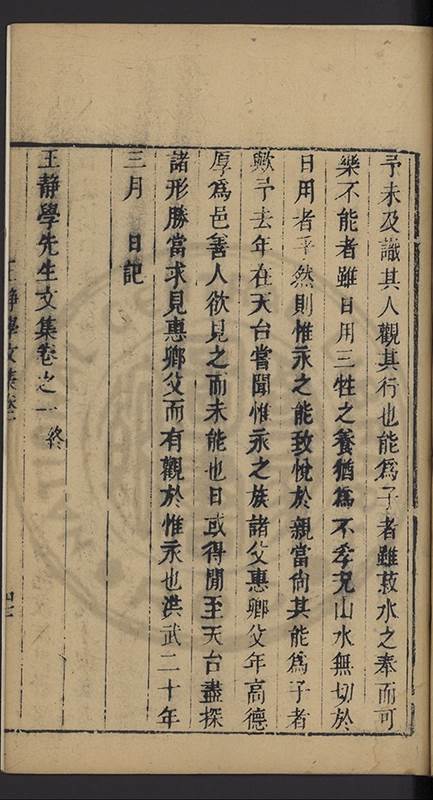 予未及識其人觀其行也能爲子者雖菽水之奉而可
樂不能者雖日用三牲之養猶爲不孝况山水無切於
日用者乎然則惟永之能致悅於親當尚其能爲子者
歟予去年在天台嘗聞惟永之族諸父惠卿父年高德
厚爲邑善人欲見之而未能也日或得閒至天台盡探
諸形勝當求見惠卿父而有觀於惟永也洪武二十年
三月　日記
王靜學先生文集卷之一終
王靜學文集卷一